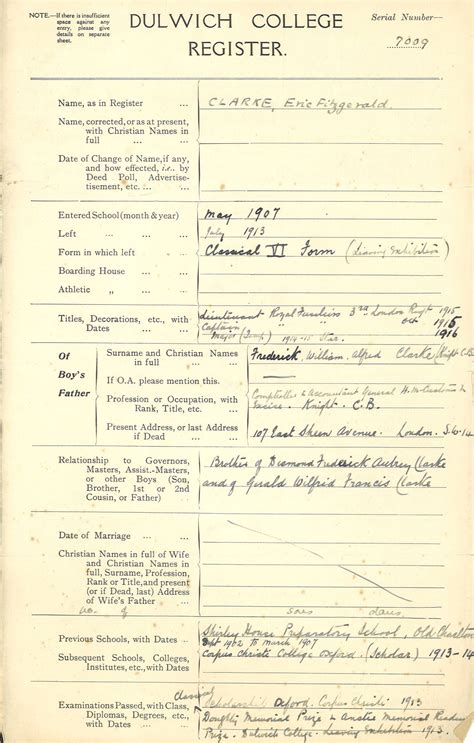 NOTE.—If there is insufficient space against any entry, please give details on separate sheet.
DULWICH COLLEGE
REGISTER.
Serial Number—
7009
Name, as in Register ... CLARKE, Eric Fitzgerald.
Name, corrected, or as at present,
with Christian Names in
full ... ...
Date of Change of Name, if any,
and how effected, i.e., by
Deed Poll, Advertise-
tisement, etc. ... ...
Entered School (month & year) May 1907
Left ... ... July 1913
Form in which left ... Classical VI Form (Leaving Exhibition)
Boarding House ... ...
Athletic „ ... ...
Titles, Decorations, etc., with
Dates ... ...
Lieutenant Royal Fusiliers 3rd London Regt 1915
Captain „ „ Oct 1915
Major (Temp) 1914-15 Star. 1916
Of
Boy's
Father
Surname and Christian Names
in full ... ...
Frederick William Alfred Clarke (Knight C.B)
If O.A. please mention this.
Profession or Occupation, with
Rank, Title, etc. ...
Comptroller & Accountant General H.M. Customs &
Excise. Knight. C.B.
Present Address, or last Address
if Dead ... ...
107 East Sheen Avenue. London. S.W.14
Relationship to Governors,
Masters, Assist.-Masters,
or other Boys (Son,
Brother, 1st or 2nd
Cousin, or Father) ...
Brother of Desmond Frederick Aubrey Clarke
and of Gerald Wilfrid Francis Clarke
Date of Marriage ... ...
Christian Names in full of Wife
and Christian Names in
full, Surname, Profession,
Rank or Title, and present
(or if Dead, last) Address
of Wife's Father ...
no. of sons daus
Previous Schools, with Dates ...
Shirley House Preparatory School, Old Charlton
Sept 1902 to March 1907
Subsequent Schools, Colleges,
Institutes, etc., with Dates
Corpus Christi College Oxford (Scholar) 1913-14
Examinations Passed, with Class,
Diplomas, Degrees, etc.,
with Dates ...
Classical
Scholarship Oxford. Corpus Christi 1913
Memorial Prize & Anstie Memorial Reading
Prize. Dulwich College. Leaving Exhibition 1913.